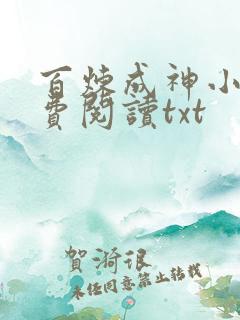 百煉成神小
費閱讀txt
賀漪很
未任同意禁止轉載